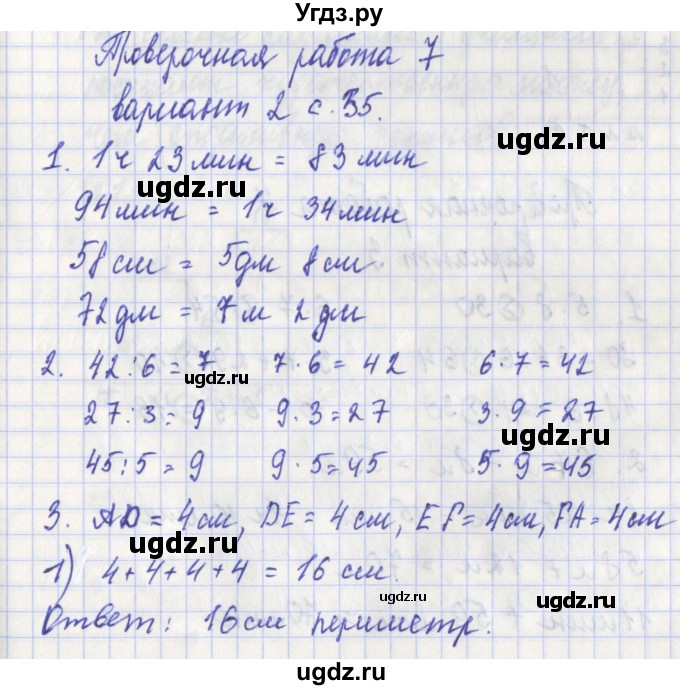 Угдз.ру
Проверочная работа 7
вариант 2 с.35.
1. 1ч 23 мин = 83 мин
94 мин = 1ч 34 мин
58 см = 5 дм 8 см
72 дм = 7 м 2 дм
2. 42:6=7 7·6=42 6·7=42
27:3=9 9·3=27 3·9=27
45:5=9 9·5=45 5·9=45
3. AD=4см, DE=4см, EF=4см, FA=4см
1) 4+4+4+4=16 см.
Ответ: 16см периметр.
ugdz.ru
ugdz.ru
ugdz.ru
ugdz.ru
ugdz.ru
ugdz.ru
ugdz.ru
ugdz.ru
ugdz.ru
ugdz.ru
ugdz.ru